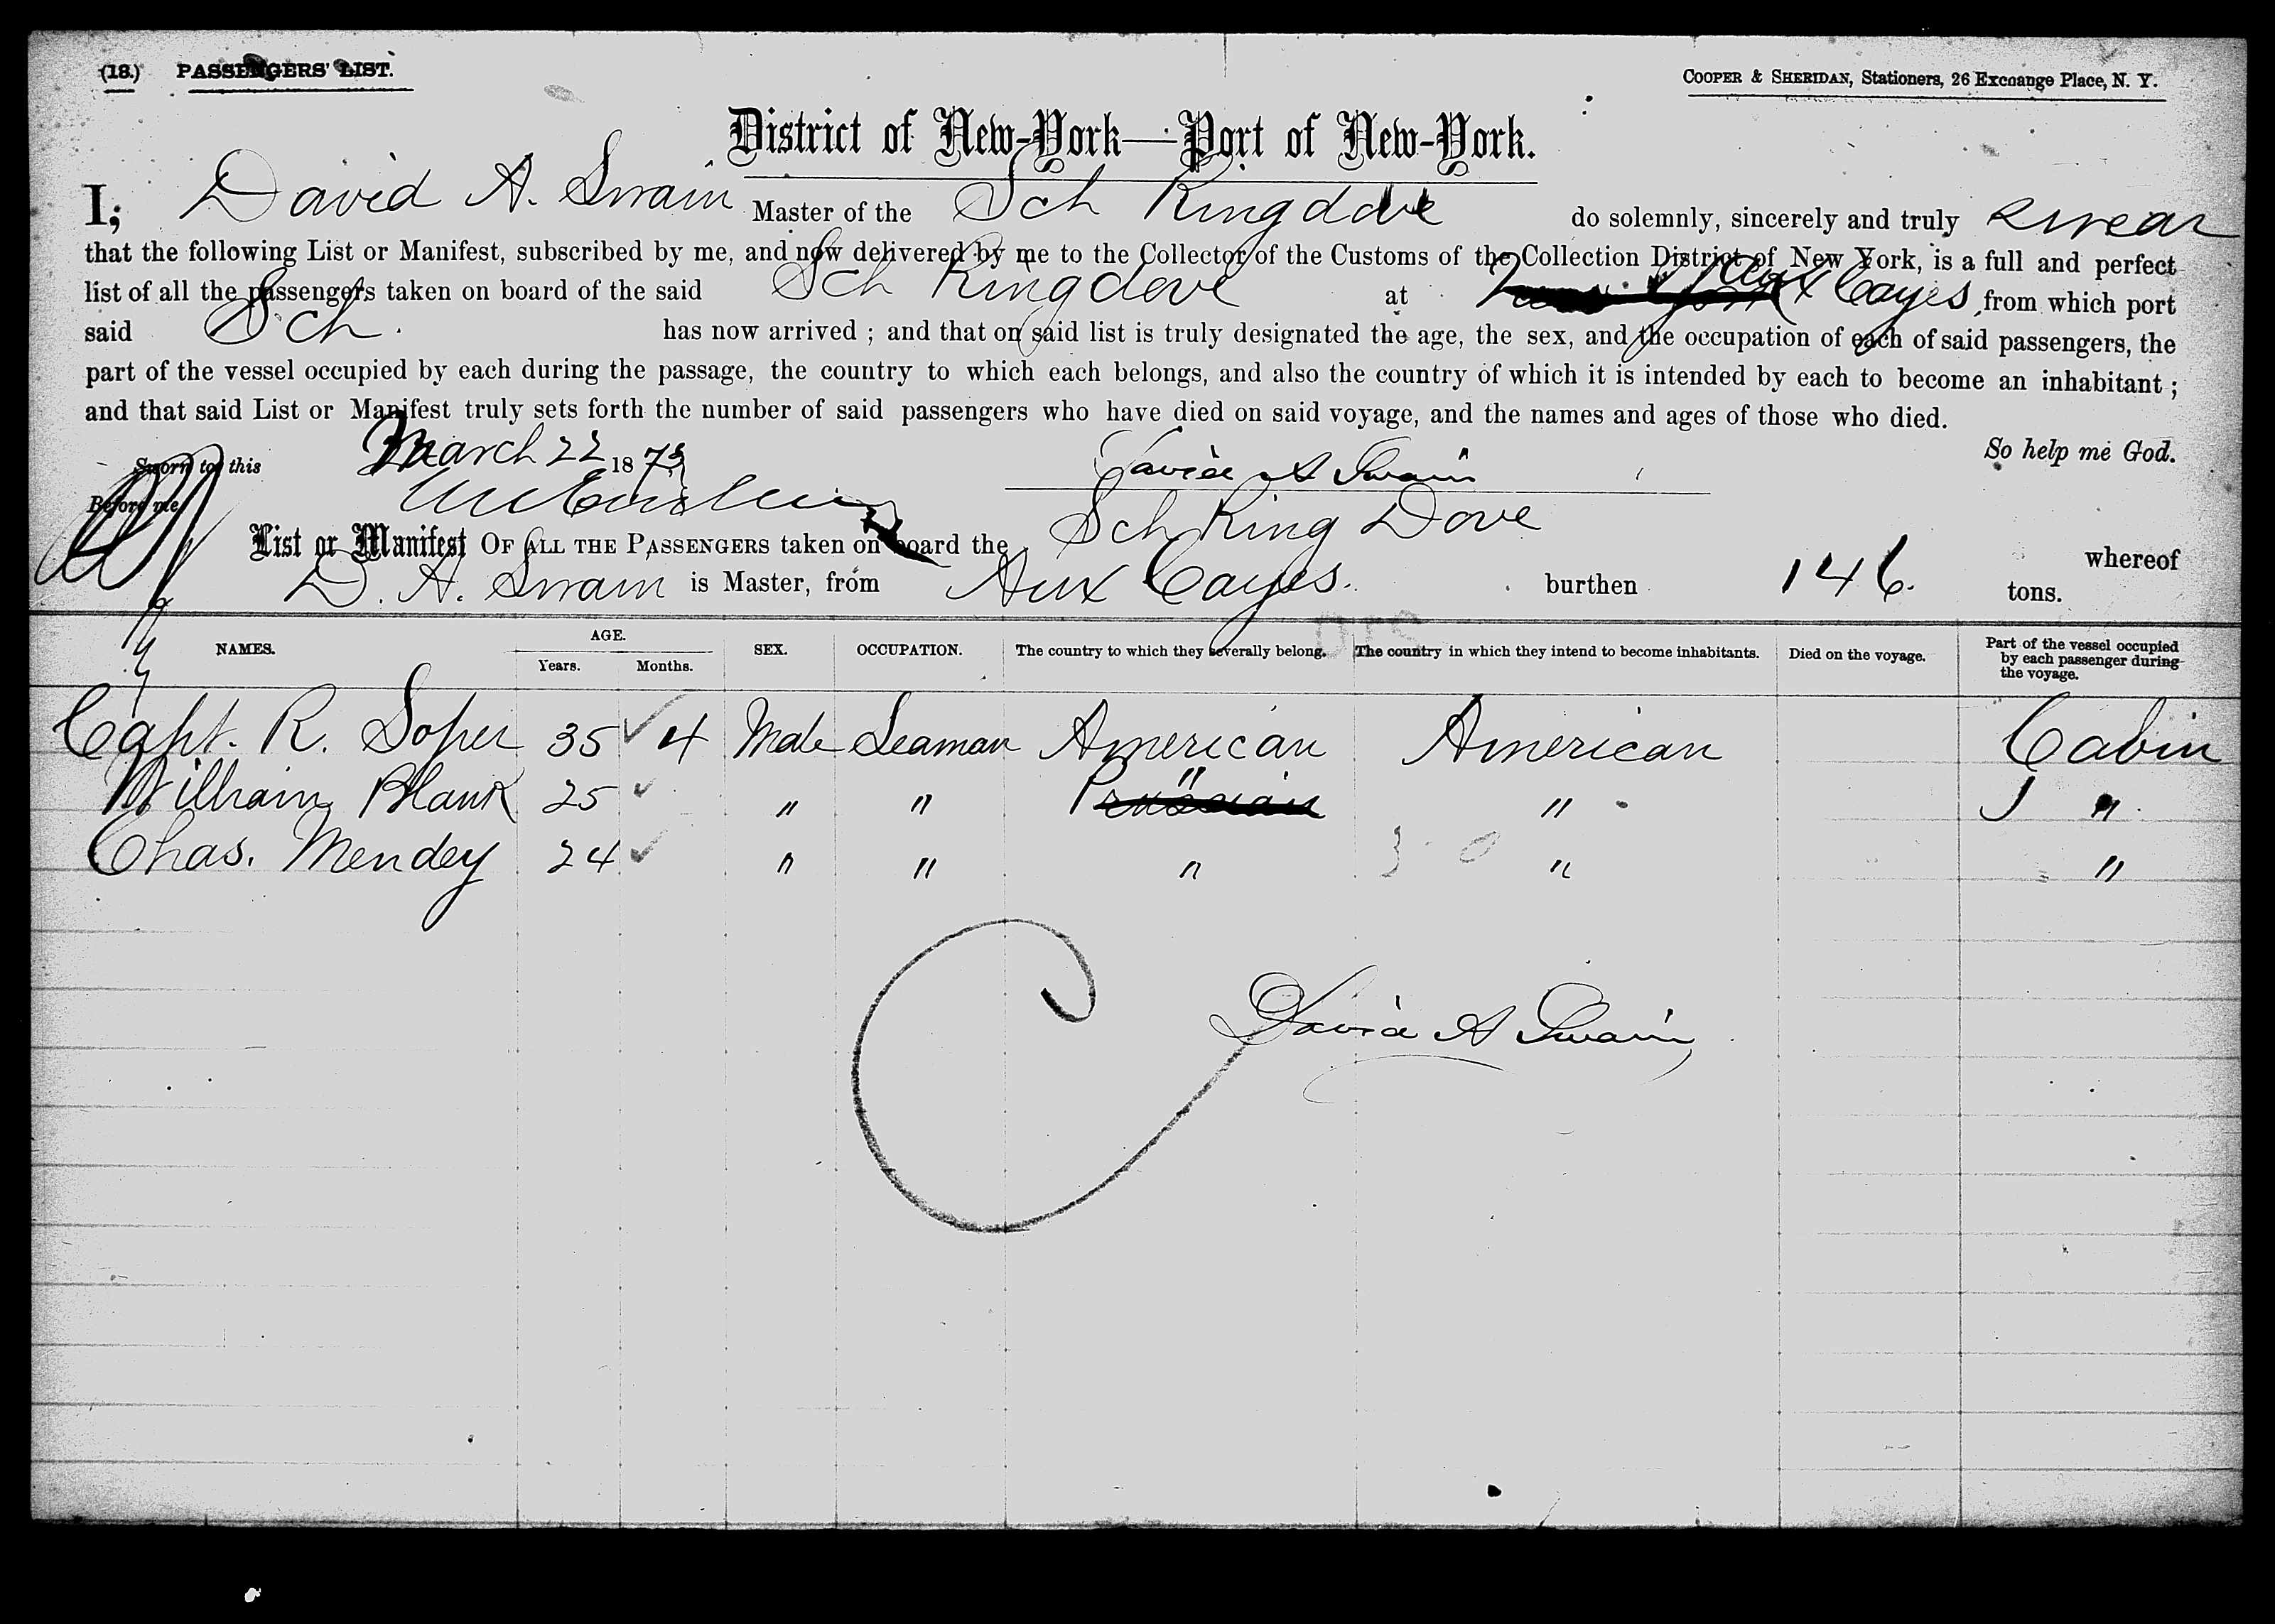 (18.) PASSENGERS' LIST.
COOPER & SHERIDAN, Stationers, 26 Exchange Place, N. Y.
District of New-York—Port of New-York.
I, David A. Swain Master of the Sch Ringdove do solemnly, sincerely and truly swear
that the following List or Manifest, subscribed by me, and now delivered by me to the Collector of the Customs of the Collection District of New York, is a full and perfect
list of all the passengers taken on board of the said Sch Ringdove at Aux Cayes, from which port
said Sch. has now arrived ; and that on said list is truly designated the age, the sex, and the occupation of each of said passengers, the
part of the vessel occupied by each during the passage, the country to which each belongs, and also the country of which it is intended by each to become an inhabitant ;
and that said List or Manifest truly sets forth the number of said passengers who have died on said voyage, and the names and ages of those who died.
So help me God.
Sworn to this March 22 1873 David A Swain
Before me
List or Manifest OF ALL THE PASSENGERS taken on board the Sch Ring Dove whereof
D. A. Swain is Master, from Aux Cayes. burthen 146. tons.
NAMES. AGE. Years. Months. SEX. OCCUPATION. The country to which they severally belong. The country in which they intend to become inhabitants. Died on the voyage. Part of the vessel occupied by each passenger during the voyage.
Capt. R. Soper 35 4 Male Seaman American American Cabin
William Blank 25 " " Prussian " " "
Chas. Mendey 24 " " " " "
David A Swain